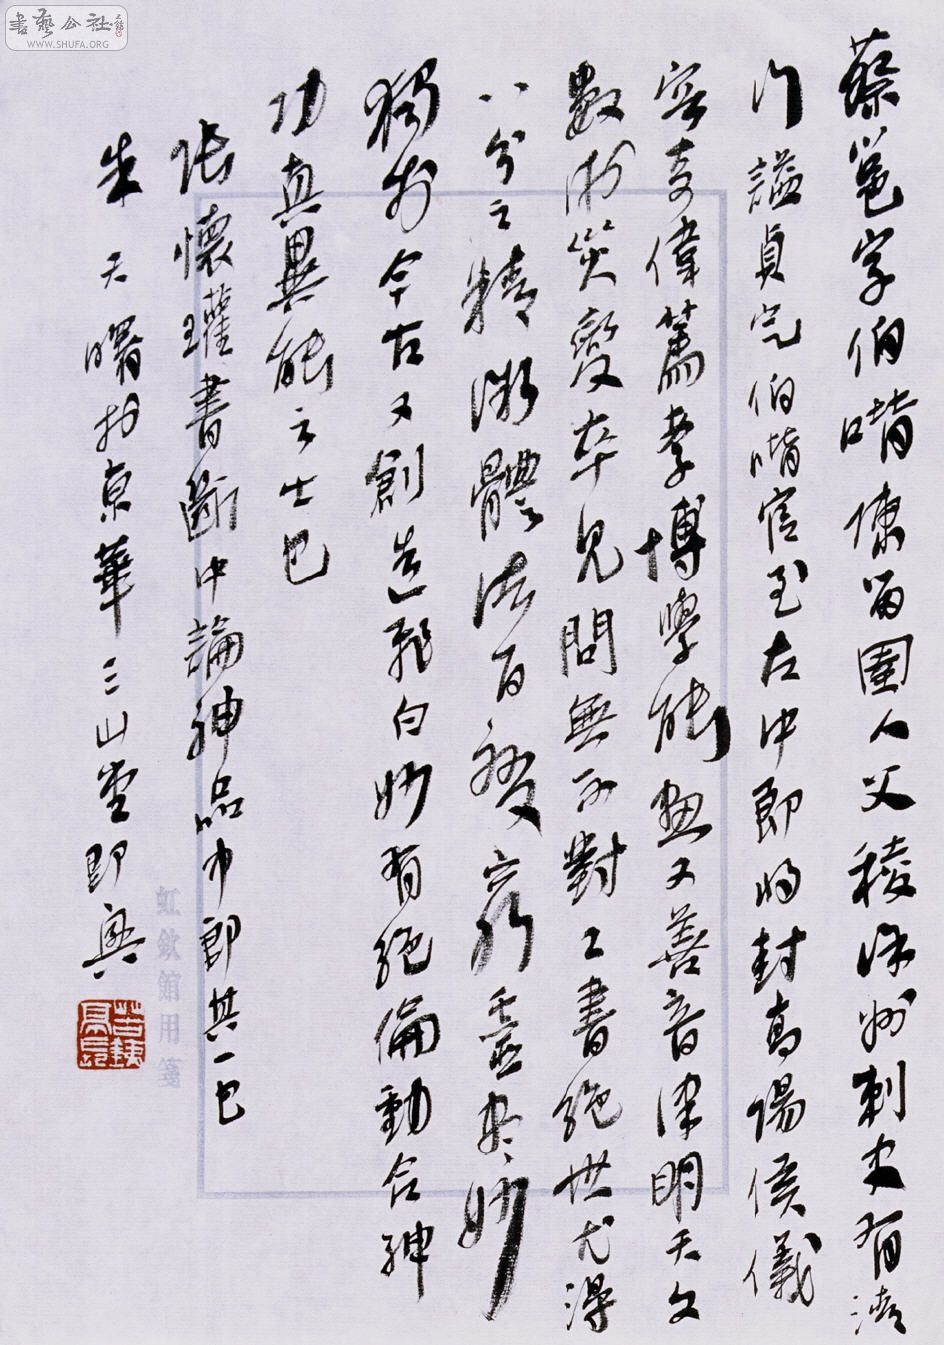 蔡邕字伯喈陳留圉人父稜徐州刺史有清
行諡貞定伯喈官至左中郎將封高陽侯儀
容奇偉篤孝博學能畫又善音律明天文
數術災變卒見問無不對工書絕世尤得
八分之精微體法百變窮靈盡妙
獨步今古又創造飛白妙有絕倫動合神
功真異能之士也
張懷瓘書斷中論神品中郎其一也
朱天曙於京華三山堂即興
虹欽館用箋
書藝公社
WWW.SHUFA.ORG